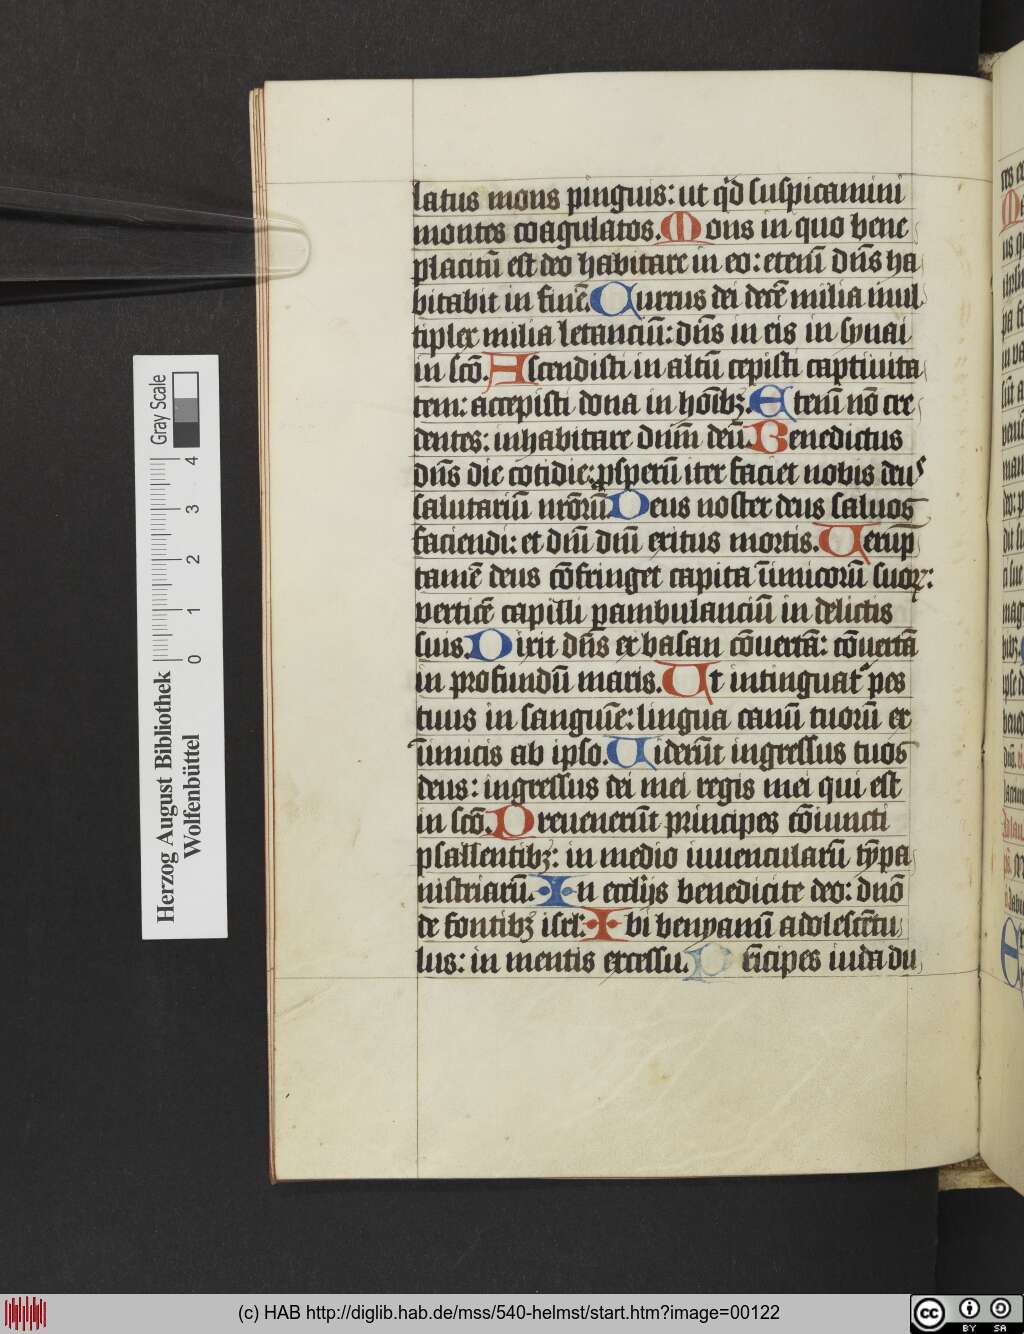 latus mons pinguis: ut qͥd suspicamini
montes coagulatos. Mons in quo bene
placitū est deo habitare in eo: etenī dn̄s ha
bitabit in finē. Currus dei decē milia mul
tiplex milia letanciū: dn̄s in eis in synai
in scō. Ascendisti in altū cepisti captiuita
tem: accepisti dona in hoībꝫ. Etenī nō cre
dentes: inhabitare dnīm deū. Benedictus
dn̄s die cotidie: ꝓsperū iter faciet nobis deus
salutariū nr̄orū. Deus noster deus saluos
faciendi: et dnī dnī exitus mortis. Uerūp
tamē deus cōfringet capita īimicorū suoꝝ:
verticē capilli ꝑambulanciū in delictis
suis. Dixit dn̄s ex basan cōuertā: cōuertā
in profundū maris. Ut intinguatᷣ pes
tuus in sanguīe: lingua canū tuorū ex
īimicis ab ipso. Uiderūt ingressus tuos
deus: ingressus dei mei regis mei qui est
in scō. Preuenerūt principes cōiuncti
psallentibꝫ: in medio iuuencularū tȳpa
nistriarū. In eccl̄ijs benedicite deo: dnō
de fontibꝫ isrl̄: Ibi benyamī adolescētu
lus: in mentis excessu. Pͥncipes iuda du
Herzog August Bibliothek
Wolfenbüttel
Gray Scale
0 1 2 3 4
(c) HAB http://diglib.hab.de/mss/540-helmst/start.htm?image=00122
cc BY SA